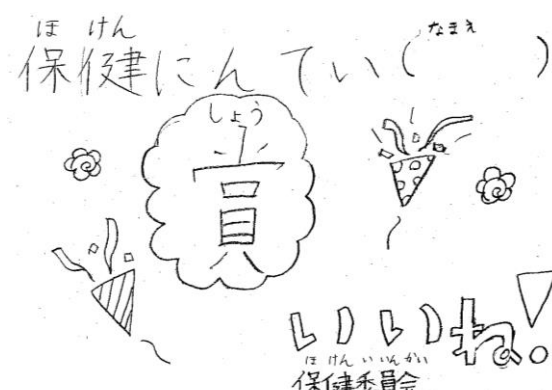 ほけん なまえ
保健にんてい( )
しょう
賞
いいね!
ほけんいいんかい
保健委員会